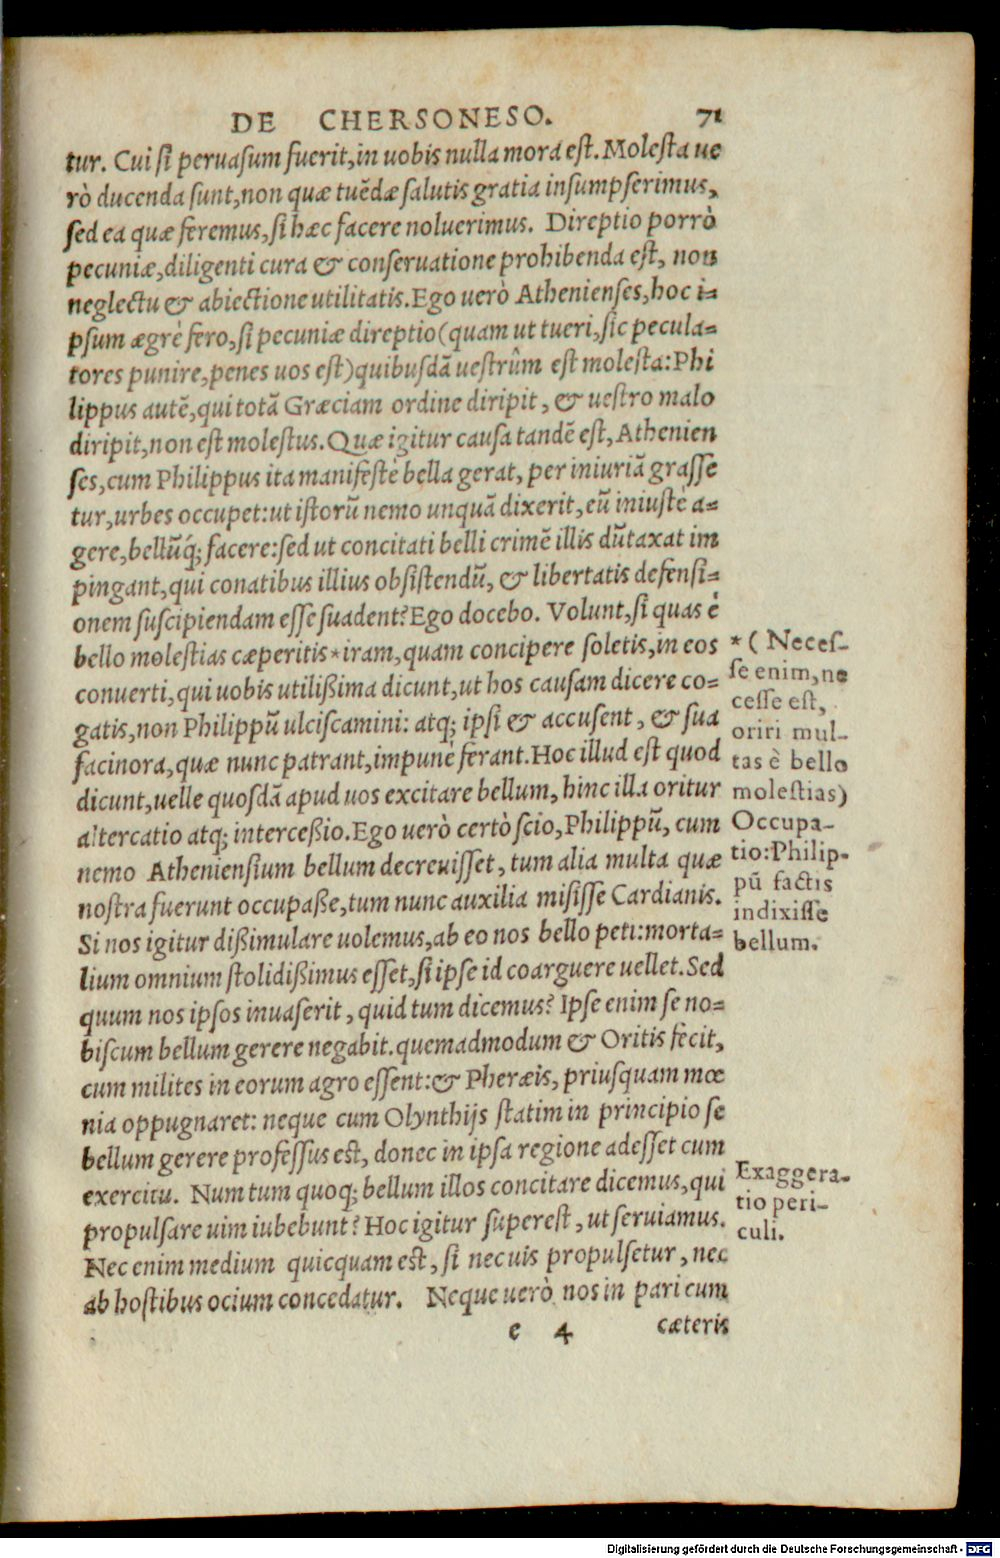 DE CHERSONESO. 71
tur. Cui si peruasum fuerit, in uobis nulla mora est. Molesta ue
rò ducenda sunt, non quæ tuẽdæ salutis gratia insumpserimus,
sed ea quæ feremus, si hæc facere noluerimus. Direptio porrò
pecuniæ, diligenti cura & conseruatione prohibenda est, non
neglectu & abiectione utilitatis. Ego uerò Athenienses, hoc i=
psum ægrè fero, si pecuniæ direptio (quam ut tueri, sic pecula=
tores punire, penes uos est) quibusdã uestrûm est molesta: Phi
lippus autẽ, qui totã Græciam ordine diripit, & uestro malo
diripit, non est molestus. Quæ igitur causa tandẽ est, Athenien
ses, cum Philippus ita manifestè bella gerat, per iniuriã grasse
tur, urbes occupet: ut istorũ nemo unquã dixerit, eũ iniustè a=
gere, bellũq́; facere: sed ut concitati belli crimẽ illis dũtaxat im
pingant, qui conatibus illius obsistendũ, & libertatis defensi=
onem suscipiendam esse suadent? Ego docebo. Volunt, si quas è
bello molestias cæperitis * iram, quam concipere soletis, in eos
conuerti, qui uobis utilißima dicunt, ut hos causam dicere co=
gatis, non Philippũ ulciscamini: atq; ipsi & accusent, & sua
facinora, quæ nunc patrant, impunè ferant. Hoc illud est quod
dicunt, uelle quosdã apud uos excitare bellum, hinc illa oritur
altercatio atq; interceßio. Ego uerò certò scio, Philippũ, cum
nemo Atheniensium bellum decreuisset, tum alia multa quæ
nostra fuerunt occupaße, tum nunc auxilia misisse Cardianis.
Si nos igitur dißimulare uolemus, ab eo nos bello peti: morta=
lium omnium stolidißimus esset, si ipse id coarguere uellet. Sed
quum nos ipsos inuaserit, quid tum dicemus? Ipse enim se no=
biscum bellum gerere negabit. quemadmodum & Oritis fecit,
cum milites in eorum agro essent: & Pheræis, priusquam mœ
nia oppugnaret: neque cum Olynthijs statim in principio se
bellum gerere professus est, donec in ipsa regione adesset cum
exercitu. Num tum quoq; bellum illos concitare dicemus, qui
propulsare uim iubebunt? Hoc igitur superest, ut seruiamus.
Nec enim medium quicquam est, si nec uis propulsetur, nec
ab hostibus ocium concedatur. Neque uerò nos in pari cum
e 4 cæteris
* ( Neces-
se enim, ne
cesse est,
oriri mul-
tas è bello
molestias)
Occupa-
tio: Philip-
pũ factis
indixisse
bellum.
Exaggera-
tio peri-
culi.
Digitalisierung gefördert durch die Deutsche Forschungsgemeinschaft - DFG